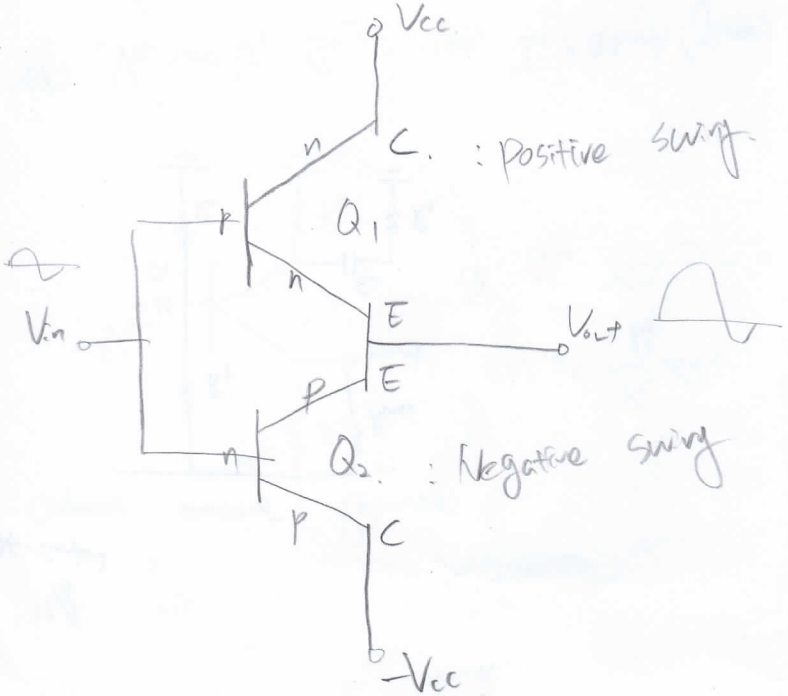 Vcc.
n
C. : positive swing.
p
Q1
n
E
Vin
Vout
E
p
n
Q2. : Negative swing
p
C
-Vcc